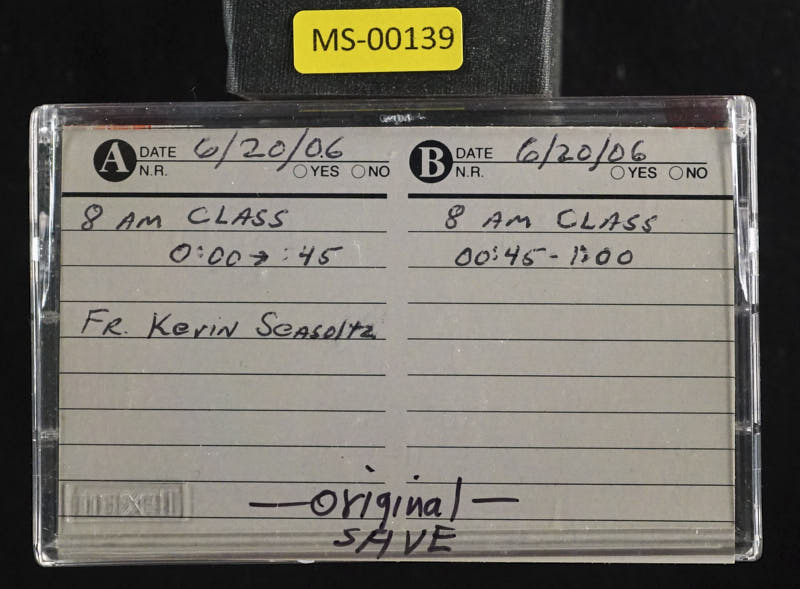 MS-00139
A DATE 6/20/06
N.R. YES NO
8 AM CLASS
0:00→ :45
Fr. Kevin Seasoltz
B DATE 6/20/06
N.R. YES NO
8 AM CLASS
00:45 - 1:00
— original —
SAVE
maxell